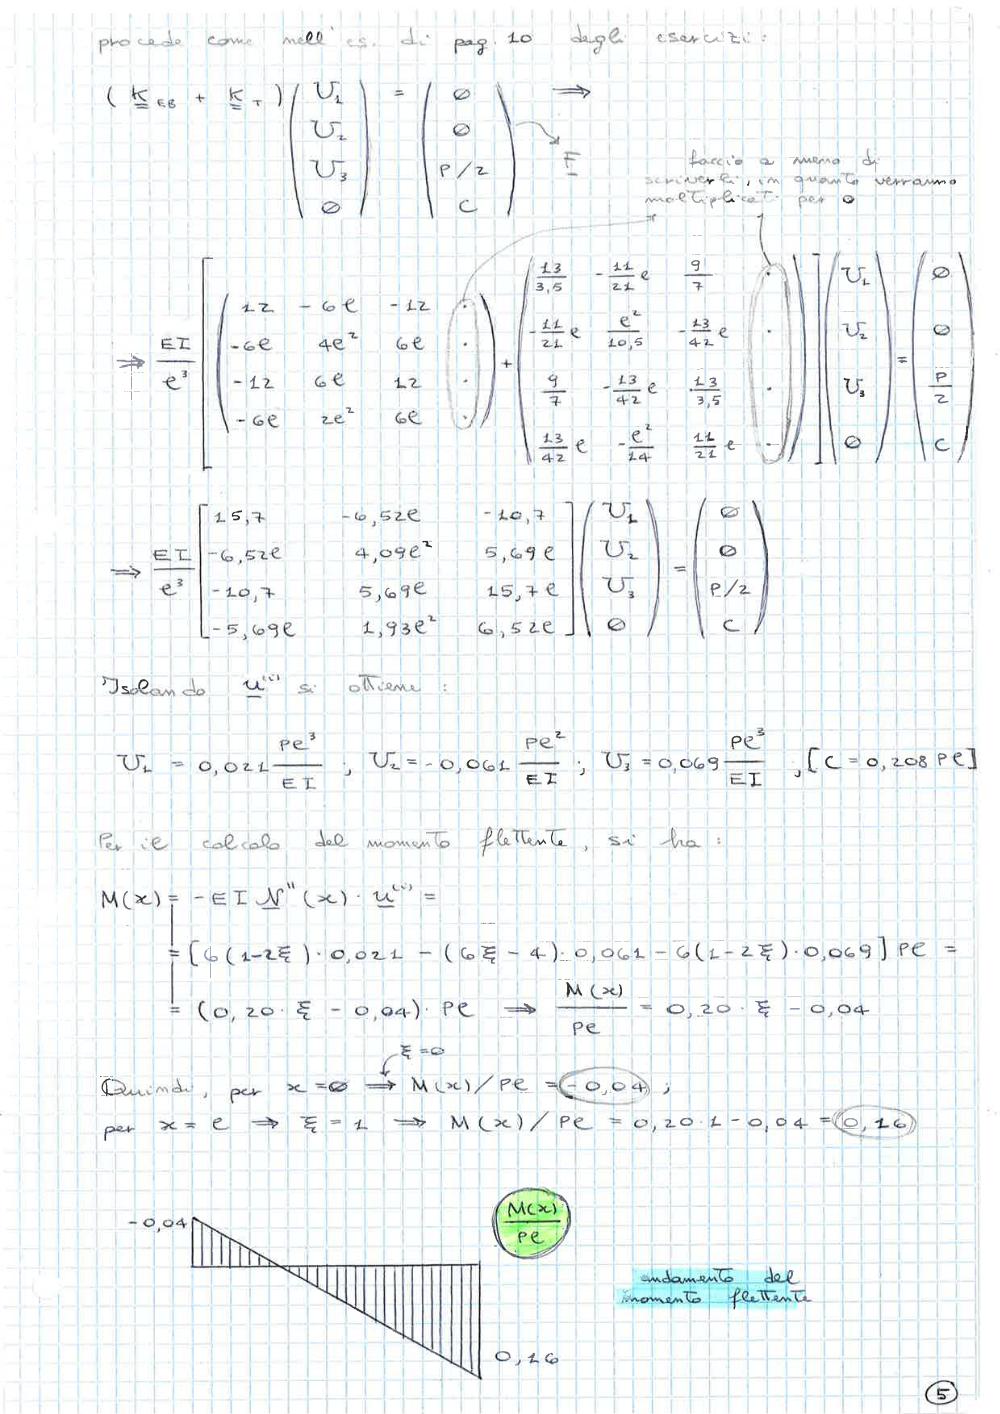 procede come nell'es. di pag. 10 degli esercizi:
( K EB + K T ) ( U1 U2 U3 ∅ ) = ( ∅ ∅ P/2 C ) ⟹
F
faccio a meno di
scriverli, in quanto verranno
moltiplicati per 0
⟹ EI/ℓ³ [ ( 12 -6ℓ -12 · ) + ( 13/3,5 -11/21 ℓ 9/7 · ) ] ( U1 ) = ( ∅ )
( -6ℓ 4ℓ² 6ℓ · ) ( -11/21 ℓ ℓ²/10,5 -13/42 ℓ · ) ( U2 ) ( ∅ )
( -12 6ℓ 12 · ) ( 9/7 -13/42 ℓ 13/3,5 · ) ( U3 ) ( P/2 )
( -6ℓ 2ℓ² 6ℓ · ) ( 13/42 ℓ -ℓ²/14 11/21 ℓ · ) ( ∅ ) ( C )
⟹ EI/ℓ³ [ 15,7 -6,52ℓ -10,7 ] ( U1 ) = ( ∅ )
[ -6,52ℓ 4,09ℓ² 5,69ℓ ] ( U2 ) ( ∅ )
[ -10,7 5,69ℓ 15,7ℓ ] ( U3 ) ( P/2 )
[ -5,69ℓ 1,93ℓ² 6,52ℓ ] ( ∅ ) ( C )
Isolando u⁽ⁱ⁾ si ottiene :
U1 = 0,021 Pℓ³/EI ; U2 = -0,061 Pℓ²/EI ; U3 = 0,069 Pℓ³/EI , [C = 0,208 Pℓ]
Per il calcolo del momento flettente, si ha :
M(x) = -EI N''(x) · u⁽ⁱ⁾ =
= [6(1-2ξ)·0,021 - (6ξ-4)·0,061 - 6(1-2ξ)·0,069] Pℓ =
= (0,20·ξ - 0,04)·Pℓ ⟹ M(x)/Pℓ = 0,20·ξ - 0,04
ξ=0
Quindi, per x=∅ ⟹ M(x)/Pℓ = -0,04 ;
per x = ℓ ⟹ ξ = 1 ⟹ M(x)/Pℓ = 0,20·1 - 0,04 = 0,16
-0,04
M(x)/Pℓ
andamento del
momento flettente
0,16
5